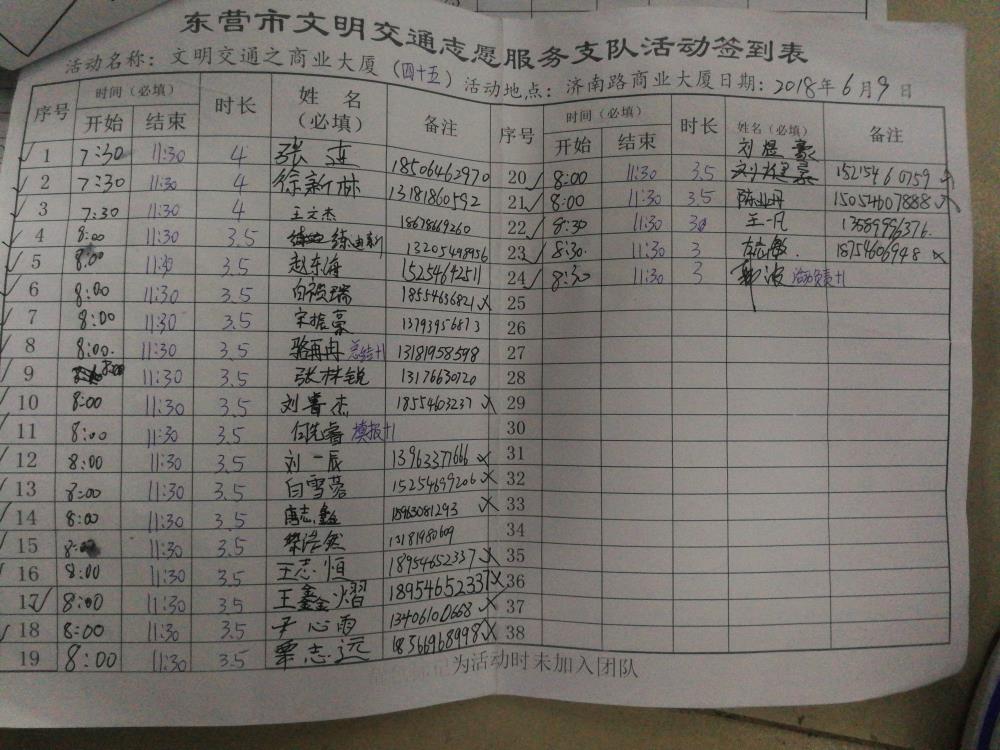 东营市文明交通志愿服务支队活动签到表
活动名称：文明交通之商业大厦（四十五）活动地点：济南路商业大厦日期：2018年6月9日
序号 时间（必填） 开始 结束 时长 姓名（必填） 备注
1 7:30 11:30 4 张 18506462970
2 7:30 11:30 4 徐新林 13181860592
3 7:30 11:30 4 王文杰 18678669260
4 8:00 11:30 3.5 13205498956
5 8:00 11:30 3.5 赵东海 15254692511
6 8:00 11:30 3.5 18554636821 ×
7 8:00 11:30 3.5 宋振豪 13793956873
8 8:00 11:30 3.5 骆再冉 总结+1 13181958598
9 8:00 11:30 3.5 张林锐 13176630720
10 8:00 11:30 3.5 刘晋杰 18554603237 ×
11 8:00 11:30 3.5 何先睿 填报+1
12 8:00 11:30 3.5 刘一辰 13963377666 ×
13 8:00 11:30 3.5 白雪蓉 15254699206 ×
14 8:00 11:30 3.5 18963081293 ×
15 8:00 11:30 3.5 13181980609
16 8:00 11:30 3.5 王志恒 18954652337 ×
17 8:00 11:30 3.5 王鑫熠 18954652337 ×
18 8:00 11:30 3.5 尹心雨 13406100668 ×
19 8:00 11:30 3.5 栗志远 18366968998 ×
序号 时间（必填） 开始 结束 时长 姓名（必填） 备注
刘煜豪
20 8:00 11:30 3.5 15215460759 ×
21 8:00 11:30 3.5 陈业丹 15054607888 ×
22 8:30 11:30 3 王一凡 13589996376
23 8:30 11:30 3 18754606948 ×
24 8:30 11:30 3 郭波 活动负责+1
25
26
27
28
29
30
31
32
33
34
35
36
37
38
为活动时未加入团队